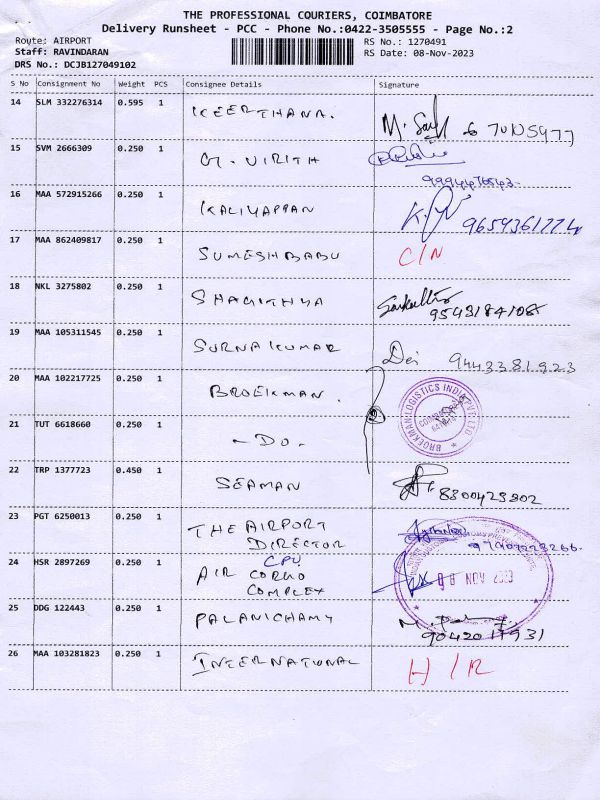 THE PROFESSIONAL COURIERS, COIMBATORE
Delivery Runsheet - PCC - Phone No.:0422-3505555 - Page No.:2
Route: AIRPORT RS No.: 1270491
Staff: RAVINDARAN RS Date: 08-Nov-2023
DRS No.: DCJB127049102
S No Consignment No Weight PCS Consignee Details Signature
14 SLM 332276314 0.595 1 KEERTHANA.
15 SVM 2666309 0.250 1 G. VIRITH
16 MAA 572915266 0.250 1 KALIYAPPAN
17 MAA 862409817 0.250 1 SUMESHBABU C/N
18 NKL 3275802 0.250 1 SHAGITHYA
19 MAA 105311545 0.250 1 SURNAKUMAR 9443381923
20 MAA 102217725 0.250 1 BROEKMAN.
BROEKMAN LOGISTICS INDIA PVT LTD
21 TUT 6618660 0.250 1 -DO-
22 TRP 1377723 0.450 1 SEAMAN 8300423302
23 PGT 6250013 0.250 1 THE AIRPORT
DIRECTOR
24 HSR 2897269 0.250 1 CPU
AIR CORGO
COMPLEX
08 NOV 2023
25 DDG 122443 0.250 1 PALANICHAMY
9042017931
26 MAA 103281823 0.250 1 INTERNATIONAL H/R